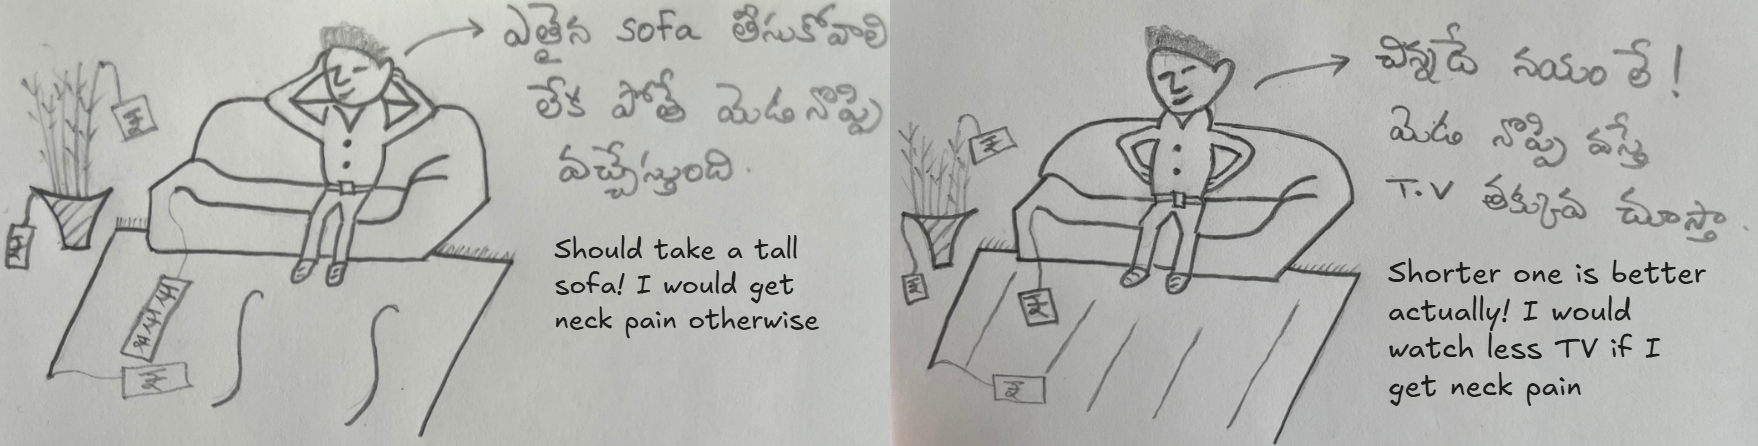 ఎత్తైన sofa తీసుకోవాలి
లేక పోతే మెడ నొప్పి
వచ్చేస్తుంది.
Should take a tall
sofa! I would get
neck pain otherwise
₹
₹
₹ ₹ ₹
₹
చిన్నదే నయం లే!
మెడ నొప్పి వస్తే
T.V తక్కువ చూస్తా.
Shorter one is better
actually! I would
watch less TV if I
get neck pain
₹
₹
₹
₹